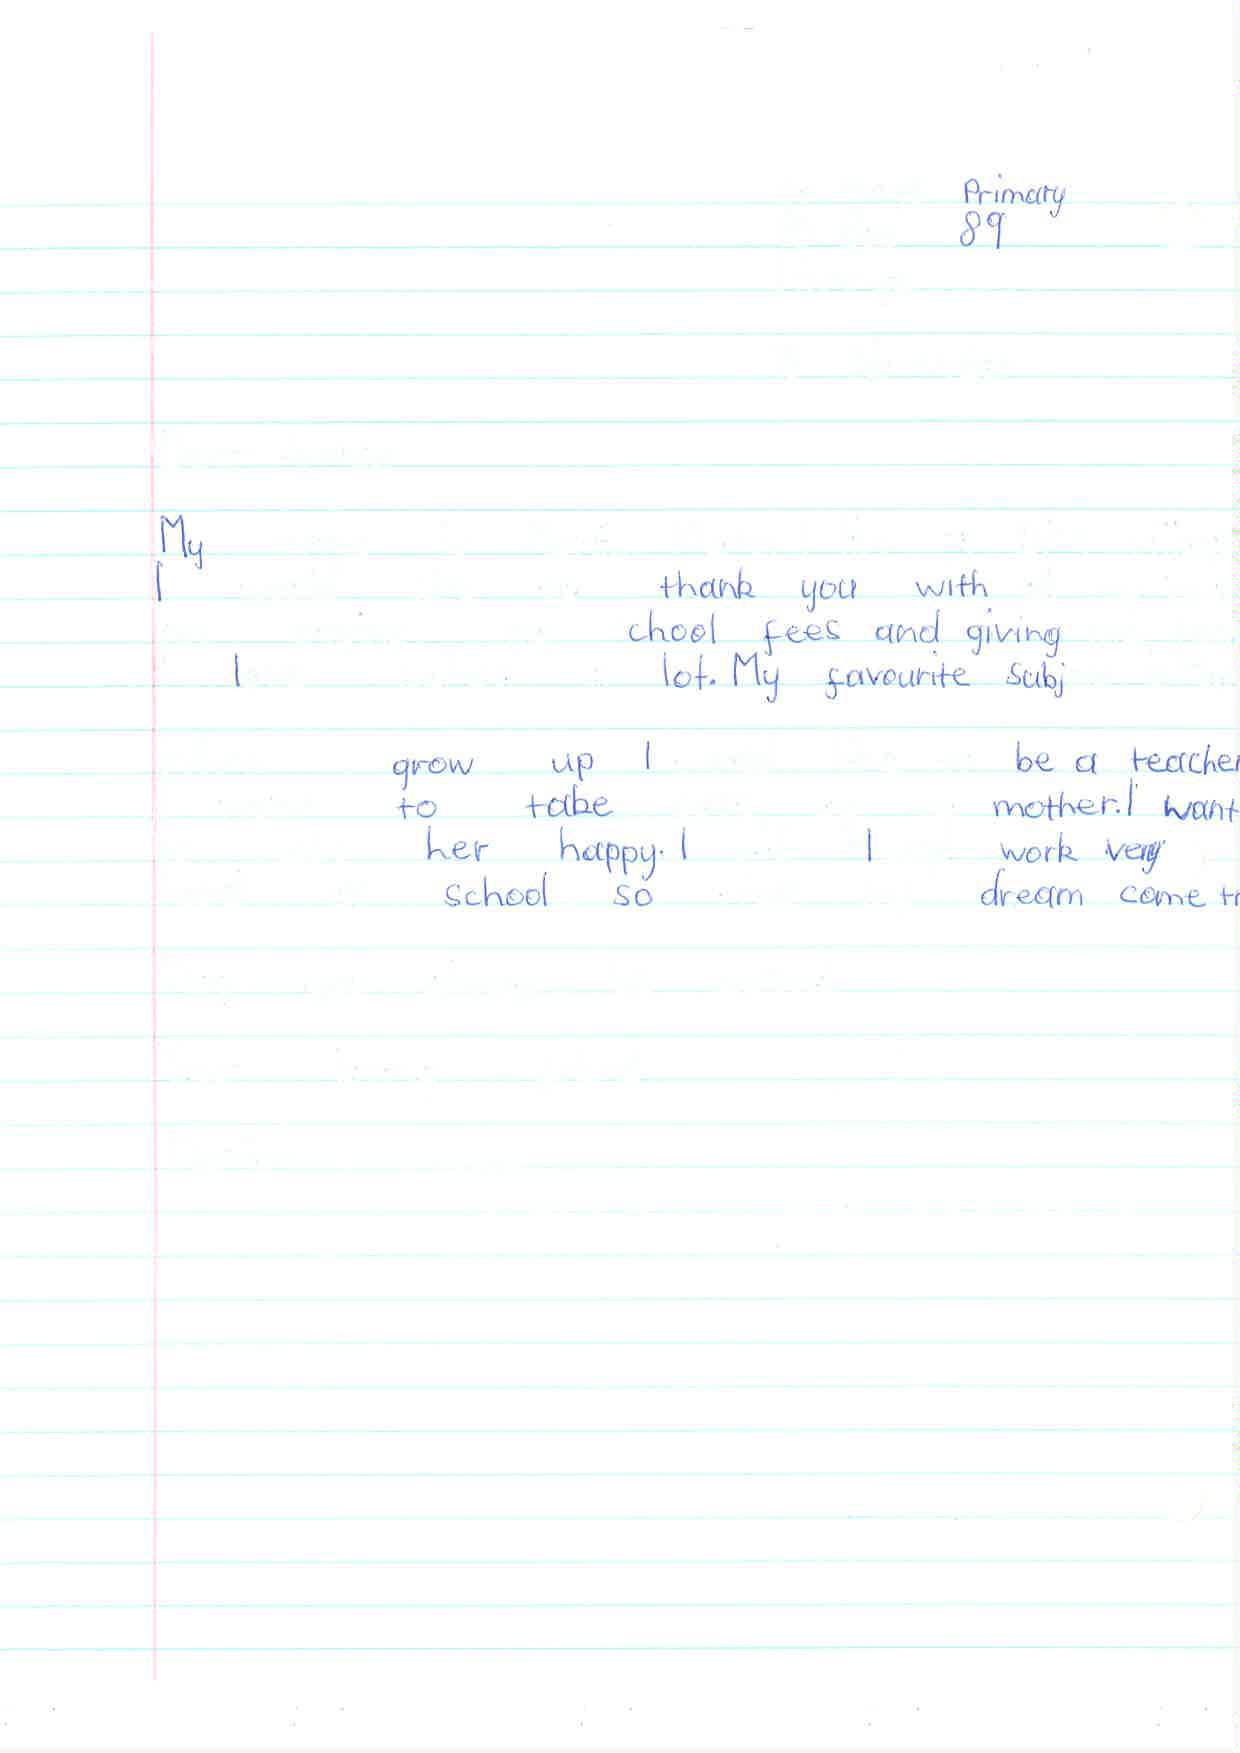 Primary
89
My
I thank you with
chool fees and giving
I lot. My favourite subj
grow up I be a teacher
to take mother. I want
her happy. I I work very
school so dream come tr